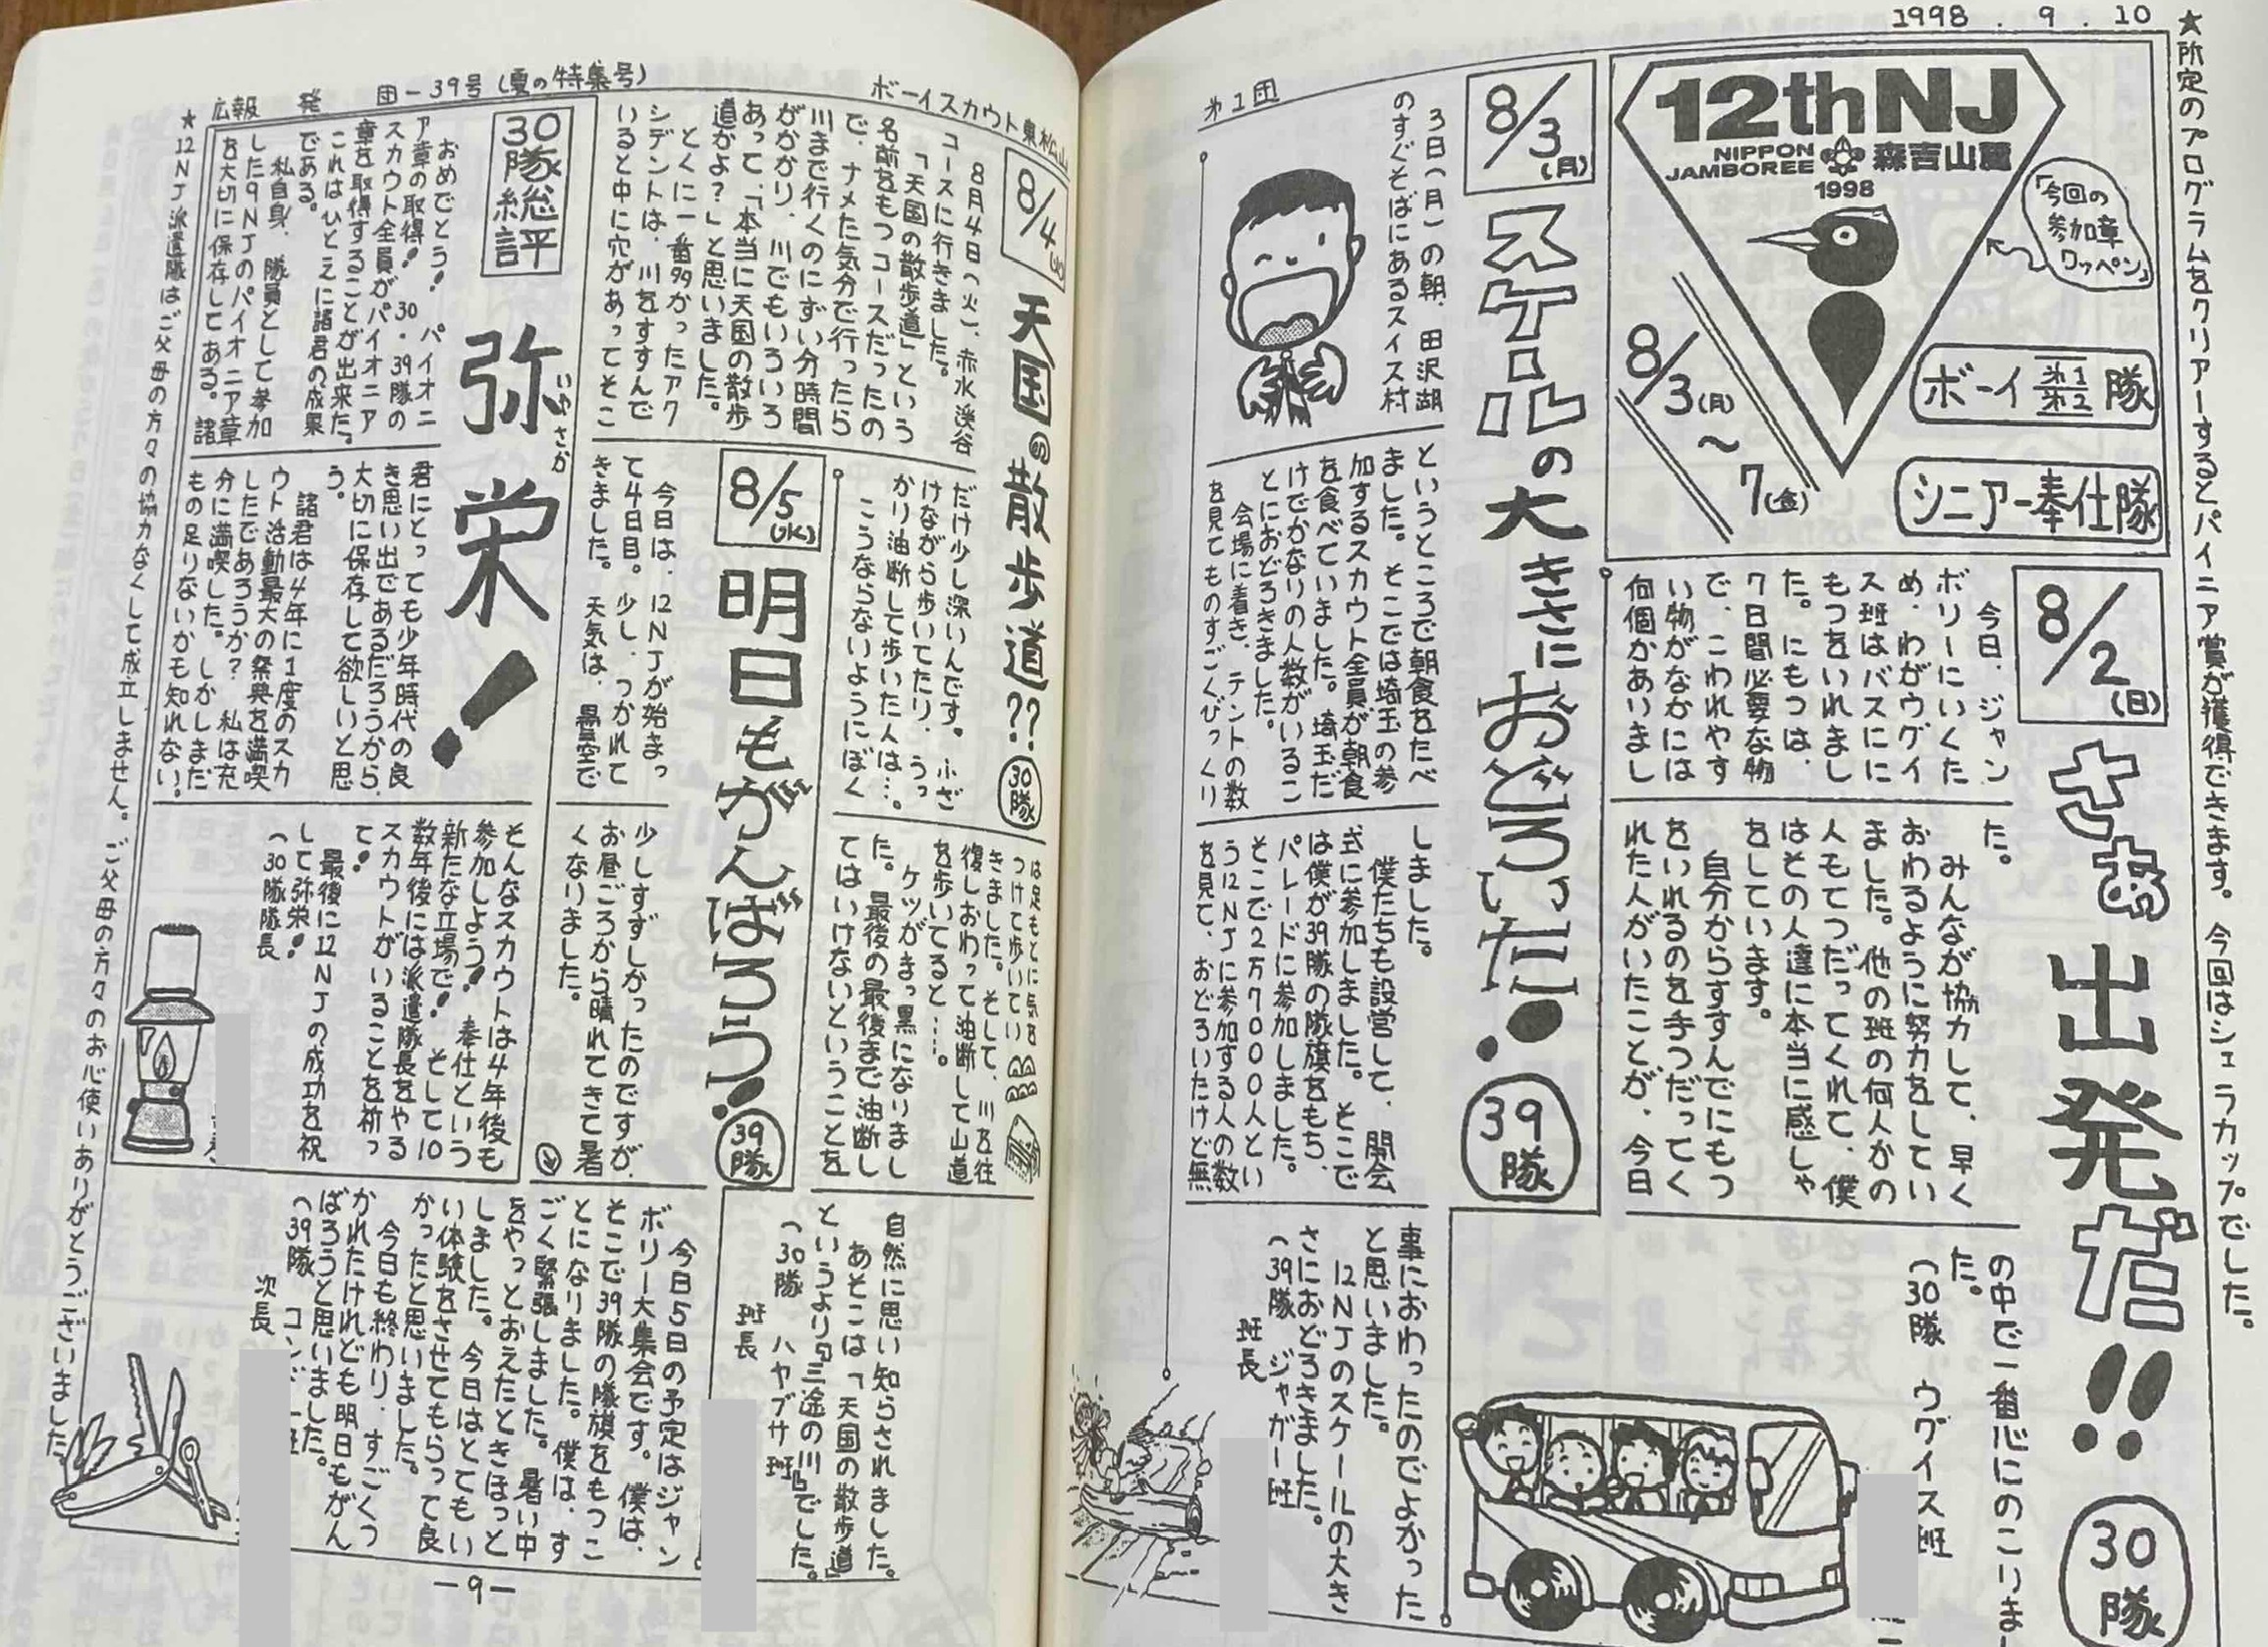 1998.9.10
★所定のプログラムをクリアーするとパイニア賞が獲得できます。今回はシェラカップでした。
12th NJ
NIPPON
JAMBOREE
森吉山麓
1998
「今回の
参加章
ワッペン」
8/3(月)
〜
7(金)
ボーイ 第1 第2 隊
シニアー奉仕隊
8/2(日)
さぁ出発だ!!
30隊
今日、ジャン
ボリーにいくた
め、わがウグイ
ス班はバスにに
もつをいれまし
た。にもつは、
7日間必要な物
で、こわれやす
い物がなかには
何個かありまし
た。
みんなが協力して、早く
おわるように努力をしてい
ました。他の班の何人かの
人もてつだってくれて、僕
はその人達に本当に感しゃ
をしています。
自分からすすんでにもつ
をいれるのを手つだってく
れた人がいたことが、今日
の中で一番心にのこりまし
た。
(30隊 ウグイス班
第1団
8/3(月)
スケールの大きさにおどろいた!
39隊
3日(月)の朝、田沢湖
のすぐそばにあるスイス村
というところで朝食をたべ
ました。そこでは埼玉の参
加するスカウト全員が朝食
を食べていました。埼玉だ
けでかなりの人数がいるこ
とにおどろきました。
会場に着き、テントの数
を見てものすごくびっくり
しました。
僕たちも設営して、開会
式に参加しました。そこで
は僕が39隊の隊旗をもち、
パレードに参加しました。
そこで2万7000人とい
う12NJに参加する人の数
を見て、おどろいたけど無
事におわったのでよかった
と思いました。
12NJのスケールの大き
さにおどろきました。
(39隊 ジャガー班
班長
ボーイスカウト東松山
団-39号(夏の特集号)
広報 発
8/4(火)
天国の散歩道??
30隊
8月4日(火)、赤水渓谷
コースに行きました。
「天国の散歩道」という
名前をもつコースだったの
で、ナメた気分で行ったら
川まで行くのにずい分時間
がかかり、川でもいろいろ
あって、「本当に天国の散歩
道かよ?」と思いました。
とくに一番多かったアク
シデントは、川をすすんで
いると中に穴があってそこ
だけ少し深いんです。ふざ
けながら歩いてたり、うっ
かり油断して歩いた人は…。
こうならないようにぼく
は足もとに気を
つけて歩いてい
きました。そして、川を往
復しおわって油断して山道
を歩いてると……。
ケツがまっ黒になりまし
た。最後の最後まで油断し
てはいけないということを
自然に思い知らされました。
あそこは「天国の散歩道」
というより『三途の川』でした。
(30隊 ハヤブサ班
班長
8/5(水)
明日もがんばろう!
39隊
今日は、12NJが始まっ
て4日目。少し、つかれて
きました。天気は、曇空で
少しすずしかったのですが、
お昼ごろから晴れてきて暑
くなりました。
今日5日の予定はジャン
ボリー大集会です。僕は、
そこで39隊の隊旗をもつこ
とになりました。僕は、す
ごく緊張しました。暑い中
をやっとおえたときほっと
しました。今日はとてもい
い体験をさせてもらって良
かったと思いました。
今日も終わり、すごくつ
かれたけれども明日もがん
ばろうと思いました。
(39隊 コンドー班
次長
30隊総評
弥栄!
いやさか
おめでとう! パイオニ
ア章の取得! 30・39隊の
スカウト全員がパイオニア
章を取得することが出来た。
これはひとえに諸君の成果
である。
私自身、隊員として参加
した9NJのパイオニア章
を大切に保存してある。諸
君にとっても少年時代の良
き思い出であるだろうから、
大切に保存して欲しいと思
う。
諸君は4年に1度のスカ
ウト活動最大の祭典を満喫
したであろうか? 私は充
分に満喫した。しかしまだ
もの足りないかも知れない。
そんなスカウトは4年後も
参加しよう! 奉仕という
新たな立場で! そして10
数年後には派遣隊長をやる
スカウトがいることを祈っ
て!
最後に12NJの成功を祝
して弥栄!
(30隊隊長
★12NJ派遣隊はご父母の方々の協力なくして成立しません。ご父母の方々のお心使いありがとうございました。
-9-